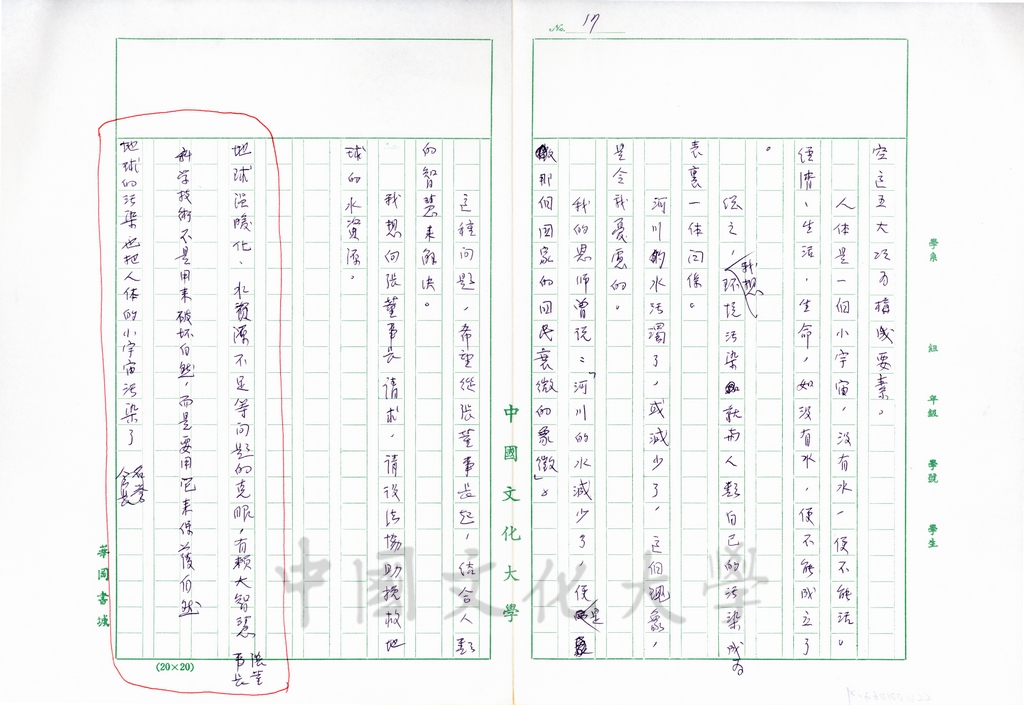 No. 17
空這五大項為構成要素。
人体是一個小宇宙，沒有水，便不能活。
經濟、生活，生命，如沒有水，便不能成立了
。
總之，我想環境污染就与人類自己的污染成为
表裏一体関係。
河川的水污濁了，或減少了，這個現象，
是令我憂慮的。
我的恩師曾說：「河川的水減少了，便是
那個国家的国民衰微的象徵」。
這種問題，希望從張董事長起，結合人類
的智慧来解決。
我想向張董事長請求，請設法協助挽救地
球的水資源。
地球温暖化、水資源不足等问題的克服，有賴大智慧 張董事長
科学技術不是用来破坏自然，而是要用它来保護自然
地球的污染也把人体的小宇宙污染了 名誉会長
學系 組 年級 學號 學生
中國文化大學
華岡書城
(20×20)
中國文化大學